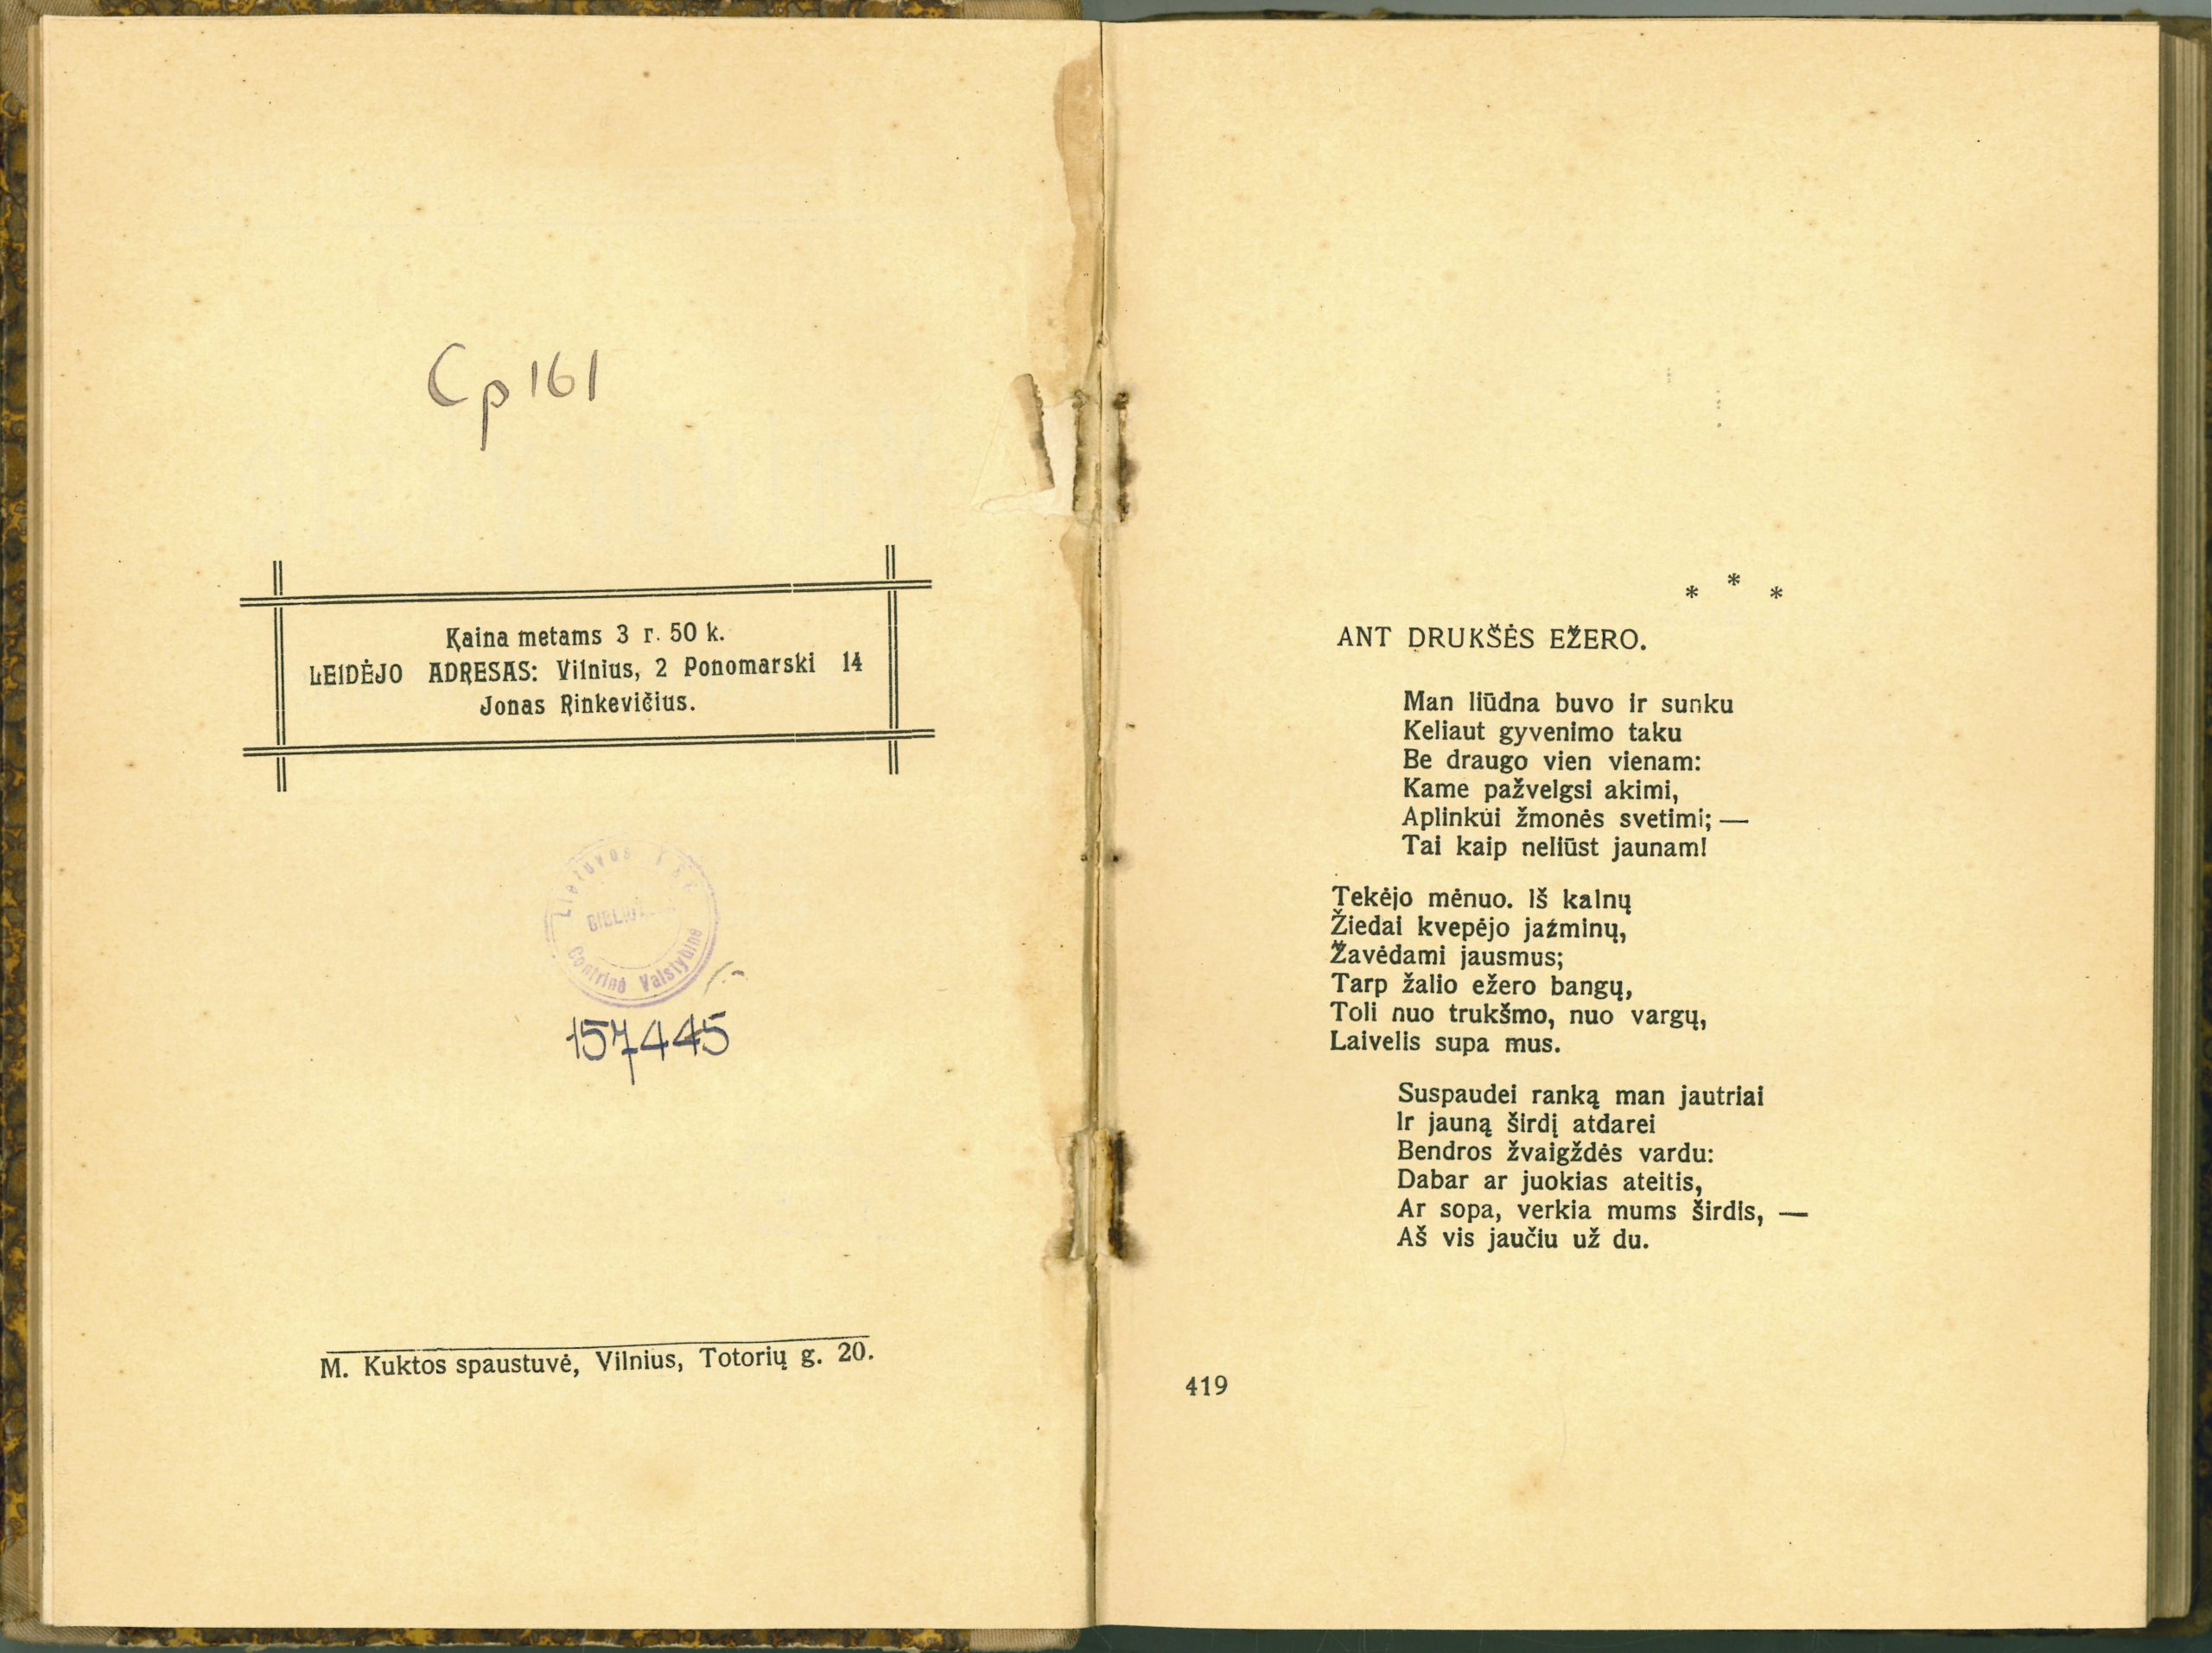 Cp 161
Kaina metams 3 r. 50 k.
LEIDĖJO ADRESAS: Vilnius, 2 Ponomarski 14
Jonas Rinkevičius.
Lietuvos
Centrinė Valstybinė
157445
M. Kuktos spaustuvė, Vilnius, Totorių g. 20.
* * *
ANT DRUKŠĖS EŽERO.
Man liūdna buvo ir sunku
Keliaut gyvenimo taku
Be draugo vien vienam:
Kame pažvelgsi akimi,
Aplinkui žmonės svetimi; —
Tai kaip neliūst jaunam!
Tekėjo mėnuo. Iš kalnų
Žiedai kvepėjo jaźminų,
Žavėdami jausmus;
Tarp žalio ežero bangų,
Toli nuo trukšmo, nuo vargų,
Laivelis supa mus.
Suspaudei ranką man jautriai
Ir jauną širdį atdarei
Bendros žvaigždės vardu:
Dabar ar juokias ateitis,
Ar sopa, verkia mums širdis, —
Aš vis jaučiu už du.
419